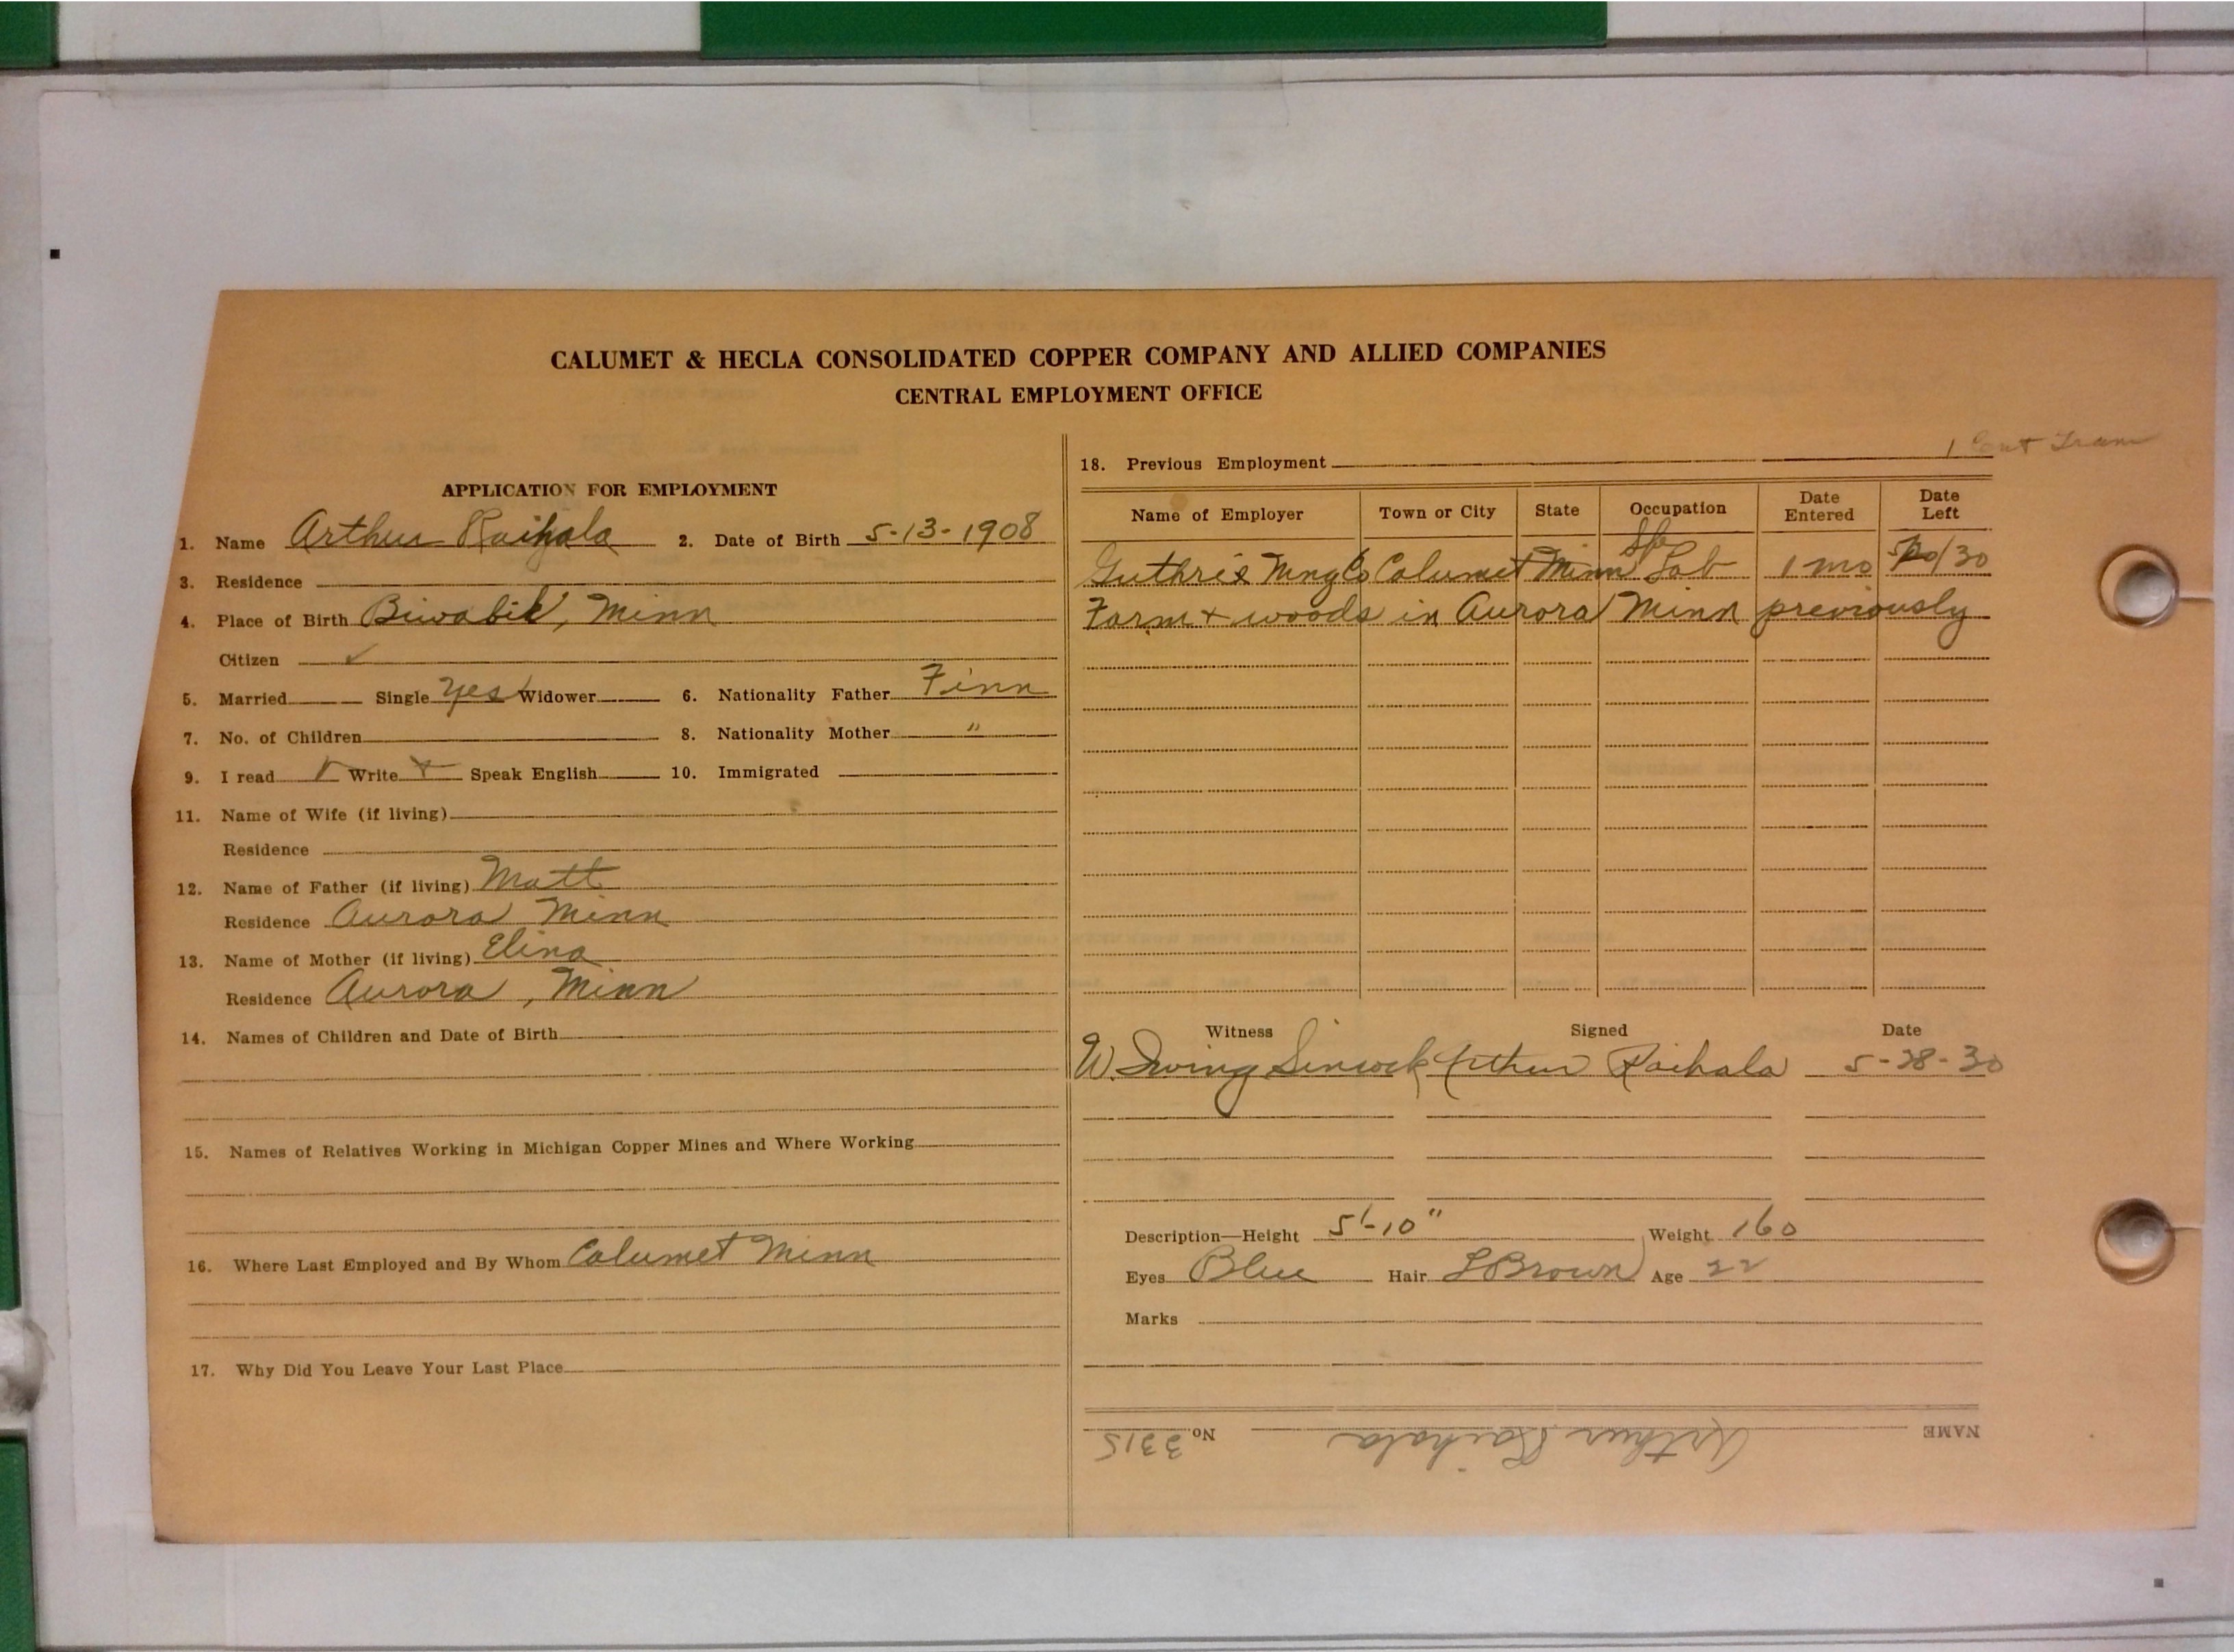 CALUMET & HECLA CONSOLIDATED COPPER COMPANY AND ALLIED COMPANIES
CENTRAL EMPLOYMENT OFFICE
APPLICATION FOR EMPLOYMENT
1. Name Arthur Raihala 2. Date of Birth 5-13-1908
3. Residence
4. Place of Birth Biwabik, Minn
Citizen ✓
5. Married Single yes Widower 6. Nationality Father Finn
7. No. of Children 8. Nationality Mother "
9. I read Write Speak English 10. Immigrated
11. Name of Wife (if living)
Residence
12. Name of Father (if living) Matt
Residence Aurora Minn
13. Name of Mother (if living) Elina
Residence Aurora, Minn
14. Names of Children and Date of Birth
15. Names of Relatives Working in Michigan Copper Mines and Where Working
16. Where Last Employed and By Whom Calumet Minn
17. Why Did You Leave Your Last Place
1 Cont Tram
18. Previous Employment
Name of Employer Town or City State Occupation Date Entered Date Left
Guthrie Mng Co Calumet Minn Lab 1 mo /30
Farm + woods in Aurora Minn previously
Witness Signed Date
W. Irving Sincock Arthur Raihala 5-28-30
Description—Height 5'-10" Weight 160
Eyes Blue Hair L Brown Age 22
Marks
NAME Arthur Raihala No. 3315